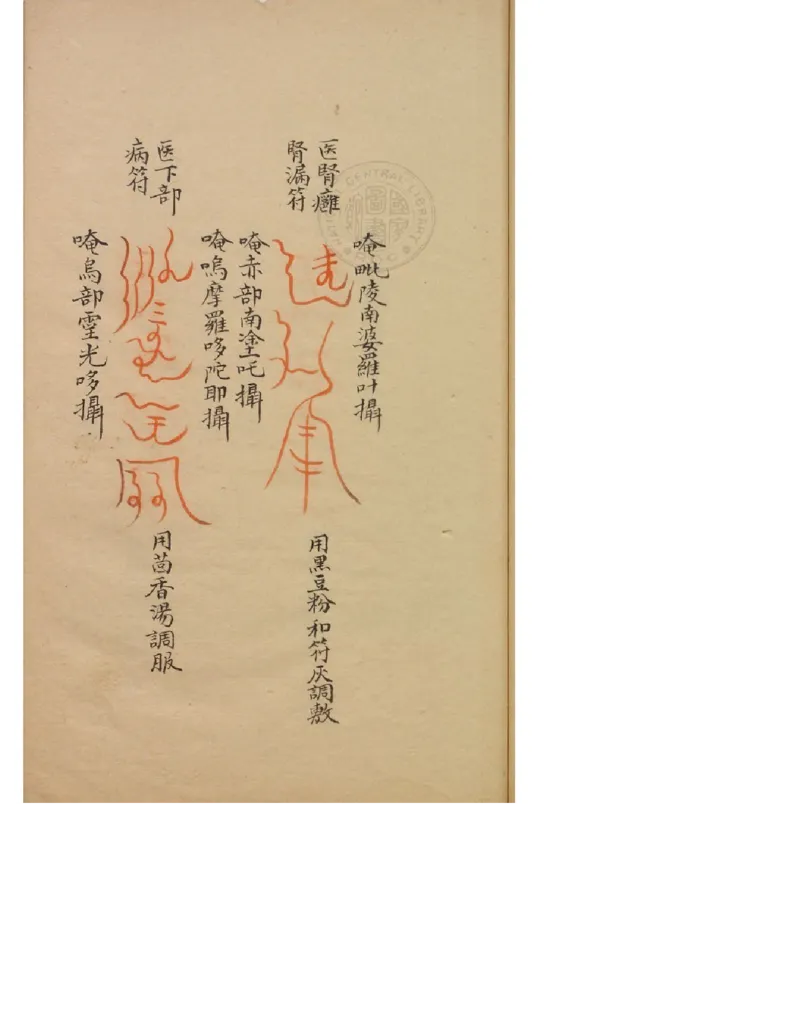 医腎癰
腎漏符
唵毗陵南婆羅叶攝
唵赤部南塗吒攝
用黑豆粉和符灰調敷
医下部
病符
唵嗚摩羅哆陀耶攝
唵烏部霊光哆攝
用茴香湯調服
CENTRAL LIBRARY